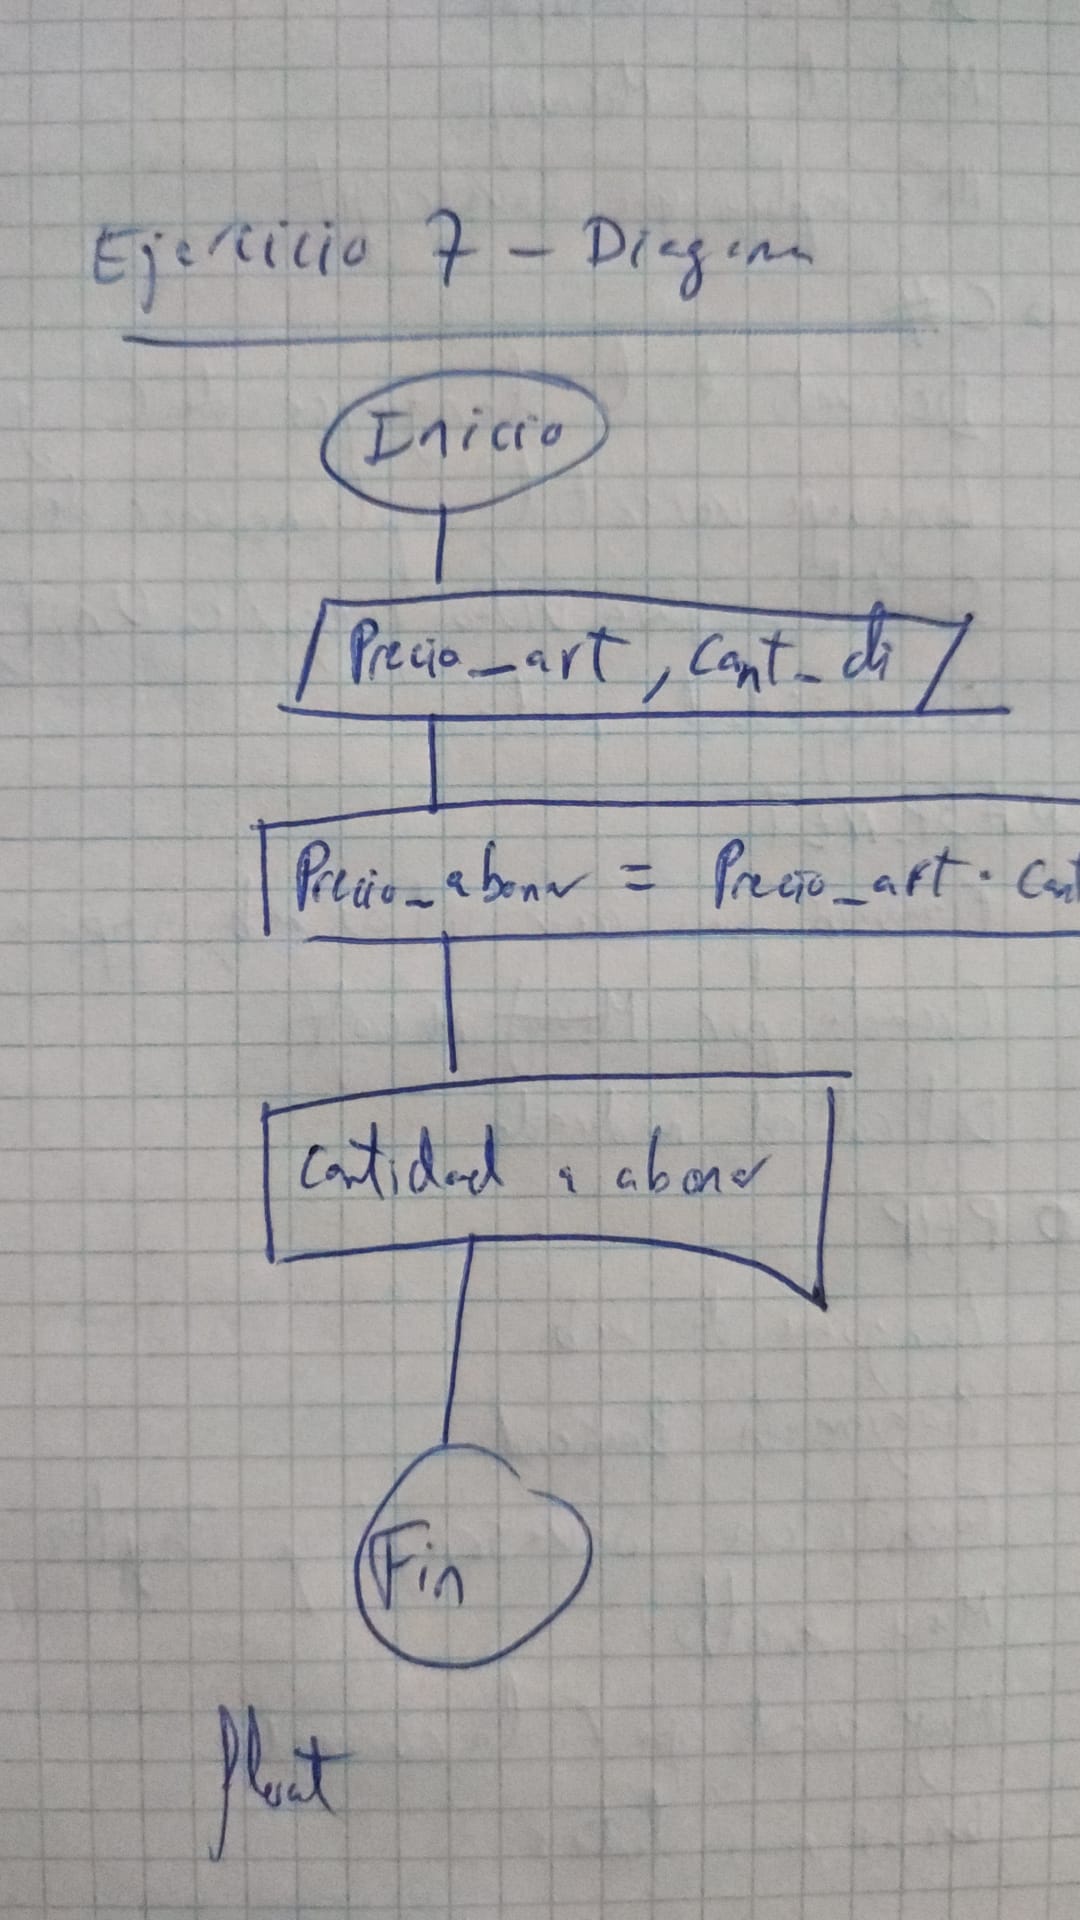 Ejercicio 7 - Diagrama
Inicio
Precio_art, Cant_di
Precio_abonar = Precio_art · Cant
Cantidad a abonar
Fin
float